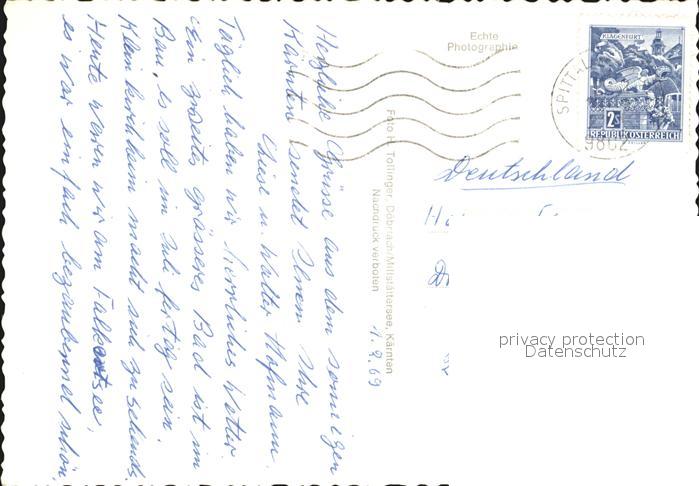 Echte
Photographie
KLAGENFURT
2S
REPUBLIK ÖSTERREICH
SPITT
9862
Deutschland
Foto H. Tollinger, Döbriach/Millstättersee, Kärnten
Nachdruck verboten
1.2.69
Herzliche Grüsse aus dem sonnigen
Kärnten sendet Ihnen Ihre
Liesl u. Walter Hofmann.
Täglich haben wir herrliches Wetter.
Ein zweites grösseres Bad ist im
Bau, es soll im Juli fertig sein.
Kleinkirchheim macht sich zusehends.
Heute waren wir am Falkertsee,
es war einfach bezaubernd schön.
privacy protection
Datenschutz